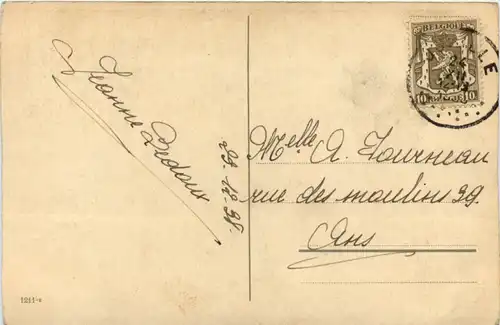 Jeanne Bedoux
29-12-38.
BELGIQUE
10 10
LLE
Melle A. Tourneau
rue des moulins 39.
Ans
1211-s